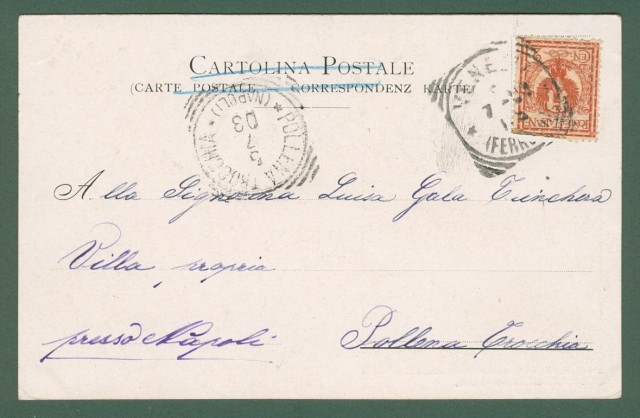 CARTOLINA POSTALE
(CARTE POSTALE — CORRESPONDENZ KARTE)
VENEZ
(FERRO
POLLENA TROCCHIA
(NAPOLI)
7
03
Alla Signorina Luisa Gala Trinchera
Villa propria
presso Napoli
Pollena Trocchia